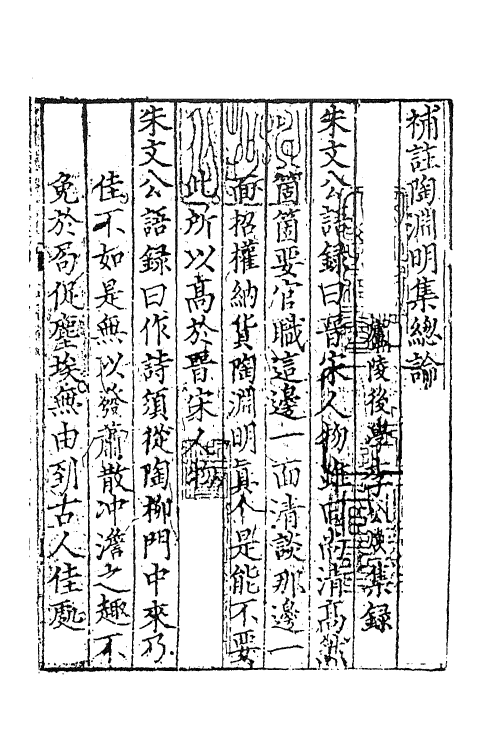 補註陶淵明集總論
廬陵後學李公煥集錄
朱文公語録曰晉宋人物雖曰尚清髙然
箇箇要官職這邊一面清談那邊一
面招權納貨陶淵明真个是能不要
此所以髙於晉宋人物
朱文公語録曰作詩須從陶栁門中來乃
佳不如是無以發蕭散冲澹之趣不
免於局促塵埃無由到古人佳處